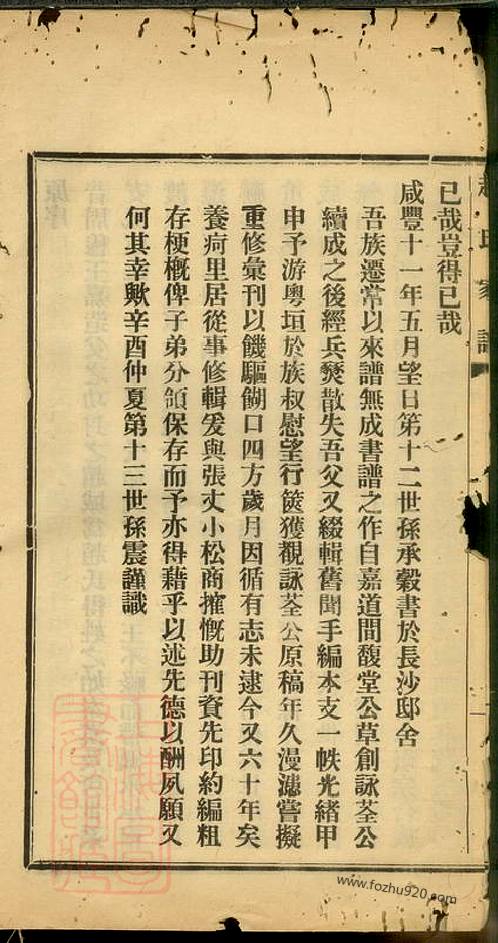 氏家譜
已哉豈得已哉
咸豐十一年五月望日第十二世孫承穀書於長沙邸舍
吾族遷常以來譜無成書譜之作自嘉道間馥堂公草創詠荃公
續成之後經兵燹散失吾父又綴輯舊聞手編本支一帙光緒甲
申予游粵垣於族叔慰望行篋獲覩詠荃公原稿年久漫漶嘗擬
重修彙刊以饑驅餬口四方歲月因循有志未逮今又六十年矣
養疴里居從事修輯爰與張丈小松商搉慨助刊資先印約編粗
存梗槪俾子弟分領保存而予亦得藉乎以述先德以酬夙願又
何其幸歟辛酉仲夏第十三世孫震謹識
www.fozhu920.com